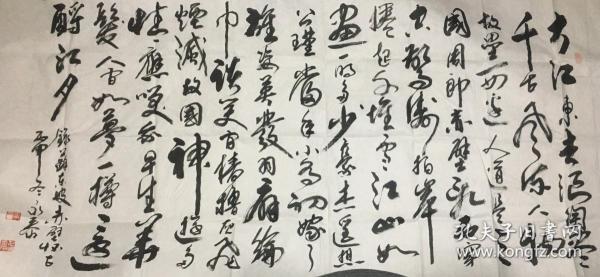 大江東去浪淘盡
千古風流人物
故壘西邊人道是三
國周郎赤壁亂石穿
空驚濤拍岸
捲起千堆雪江山如
畫一時多少豪傑遥想
公瑾當年小喬初嫁了
雄姿英發羽扇綸
巾談笑间樯櫓灰飛
煙滅故國神遊多
情應笑我早生華
髮人間如夢一樽還
酹江月
錄蘇東坡赤壁怀古
冬
孔夫子旧书网